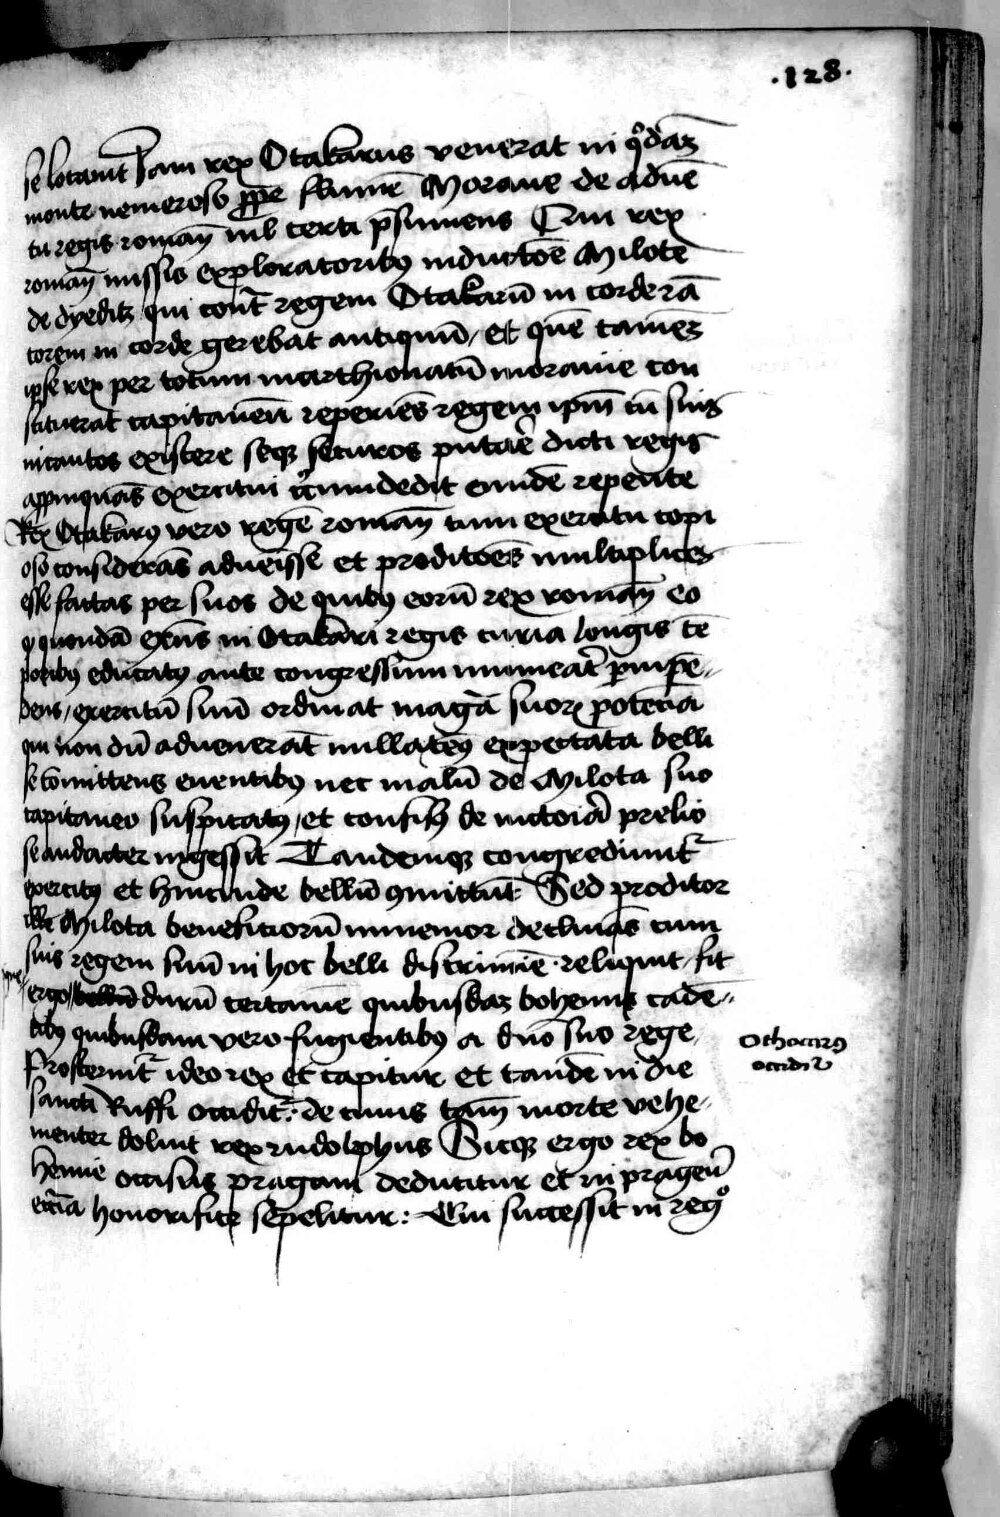 .128.
se locavit Iam rex Otakarus venerat in q̊daʒ
monte nemeroso ꝓpe flumē Moraue de aduē
tu regis romaꝝ nil certi p̄sumens Cui rex
romaꝝ missis exploratoribꝯ inductōe Milote
de dyeditz qui cont̄ regem Otakarū in corde rā
torem in corde gerebat antiquū / et quē tamēʒ
ipse rex per totum marchionatū morauie con
stituerat capitaneū reperiēs regem ip̄m cū suis
incautos existere seqꝫ securos putar̄e dicti regis
appinquās exercitui t̄cumdedit eundē repente
Rex Otakarꝯ vero regē romaꝝ cum exercitu copi
oso considerās aduenisse et proditōes multiplices
esse factas per suos de quibꝯ eorū rex romaꝝ eo
ꝙ quondā exn̄s in Otakari regis curia longis tē
poribꝯ educatꝯ ante congressum inmineat̄
dens / exercitū suū ordinat magā suoꝝ potēcia
qui non dū aduenerat nullatenꝯ expectata belli
se cōmittens euentibꝯ nec malū de Milota suo
capitaneo suspicatꝯ / et confisꝯ de victoria prelio
se audacter ingessit Tandemqꝫ congrediunt᷑
exercitꝯ et hincinde bellū ꝯmittūt Sed proditor
ille Milota beneficiorū inmemor declinās cum
suis regem suū in hoc belli discrimīe reliquit / fit
ergo durū certamē quibusdaʒ bohemis cadē-
tibꝯ quibusdam vero fugientibꝯ a dn̄o suo rege
Prosternit᷑ ideo rex et capitur et tandē in die
sancti Ruffi occidit᷑. de cuius tam̄ morte vehe-
menter doluit rex rudolphus Sicqꝫ ergo rex bo
hemie occisus pragam deducitur et in pragen̄
ecc̄ia honorifice sepelitur : Cui successit in regº
Othacarꝯ
occidit᷑